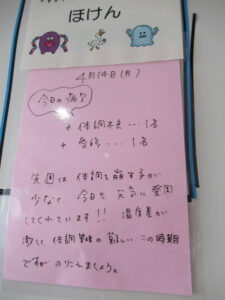 ほけん
4月14日(月)
今日の病欠
+ 体調不良…1名
+ 受診…1名
先週は体調を崩す子が
少なく、今日も元気に登園
してくれています!! 温度差が
激しく体調管理の難しいこの時期
ですがのりこえましょう。